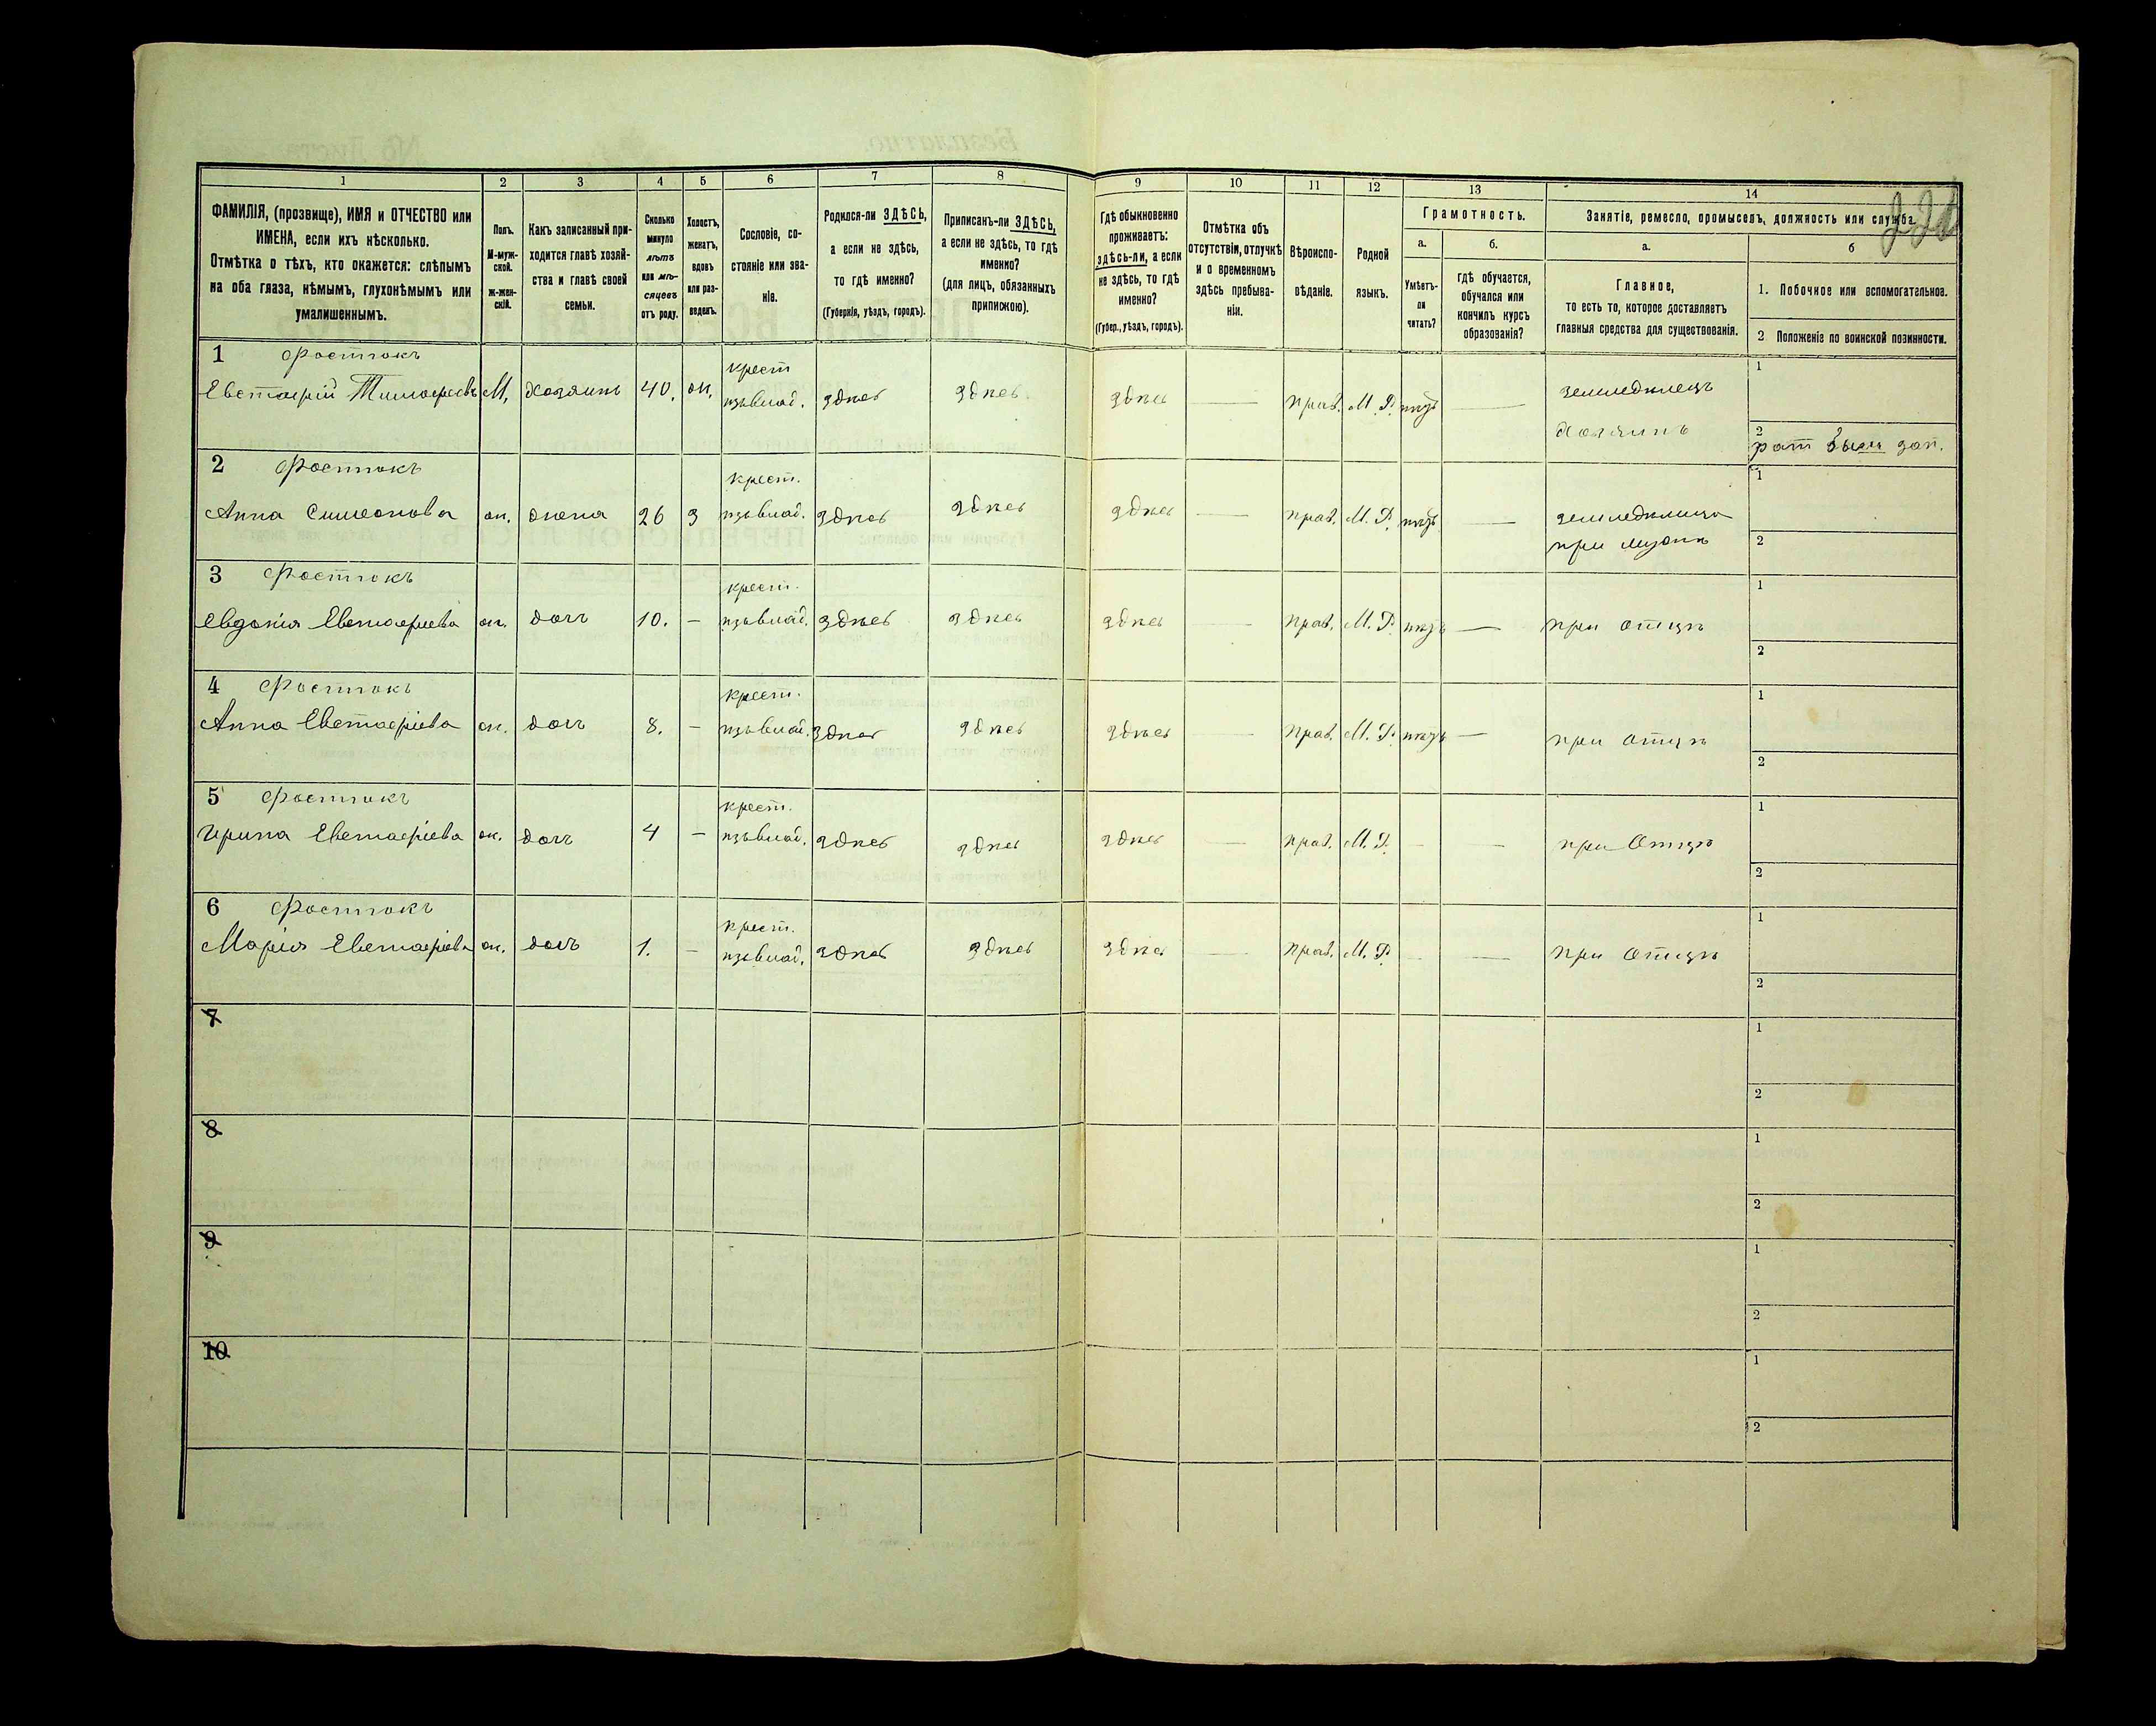 1 2 3 4 5 6 7 8 9 10 11 12 13 14
ФАМИЛІЯ, (прозвище), ИМЯ и ОТЧЕСТВО или
ИМЕНА, если ихъ нѣсколько.
Отмѣтка о тѣхъ, кто окажется: слѣпымъ
на оба глаза, нѣмымъ, глухонѣмымъ или
умалишеннымъ.
Полъ.
М-муж-
ской.
ж-жен-
скій.
Какъ записанный при-
ходится главѣ хозяй-
ства и главѣ своей
семьи.
Сколько
минуло
лѣтъ
или мѣ-
сяцевъ
отъ роду.
Холостъ,
женатъ,
вдовъ
или раз-
веденъ.
Сословіе, со-
стояніе или зва-
ніе.
Родился-ли ЗДѢСЬ,
а если не здѣсь,
то гдѣ именно?
(Губернія, уѣздъ, городъ).
Приписанъ-ли ЗДѢСЬ,
а если не здѣсь, то гдѣ
именно?
(для лицъ, обязанныхъ
припискою).
Гдѣ обыкновенно
проживаетъ:
здѣсь-ли, а если
не здѣсь, то гдѣ
именно?
(Губер., уѣздъ, городъ).
Отмѣтка объ
отсутствіи, отлучкѣ
и о временномъ
здѣсь пребыва-
ніи.
Вѣроиспо-
вѣданіе.
Родной
языкъ.
Грамотность.
а.
Умѣетъ-
ли
читать?
б.
гдѣ обучается,
обучался или
кончилъ курсъ
образованія?
Занятіе, ремесло, промыселъ, должность или служба.
а.
Главное,
то есть то, которое доставляетъ
главныя средства для существованія.
б
1. Побочное или вспомогательное.
2 Положеніе по воинской повинности.
1 Фостокъ крест 1
Евстафій Тимофеевъ М. хозяинъ 40. ж. здѣсь здѣсь здѣсь — прав. М.Р. — земледѣлецъ
хозяинъ 2
2 Фостокъ крест. 1
Анна Симеонова ж. жена 26 З здѣсь здѣсь здѣсь — прав. М.Р. —
при мужѣ 2
3 Фостокъ крест. 1
Евдокія Евстафіева ж. дочь 10. — здѣсь здѣсь здѣсь — прав. М.Р. — при отцѣ
2
4 Фостокъ крест. 1
Анна Евстафіева ж. дочь 8. — здѣсь здѣсь здѣсь — прав. М.Р. — при отцѣ
2
5 Фостокъ крест. 1
Ирина Евстафіева ж. дочь 4 — здѣсь здѣсь здѣсь — прав. М.Р. — — при отцѣ
2
6 Фостокъ крест. 1
Марія Евстафіева ж. дочь 1. — здѣсь здѣсь здѣсь — прав. М.Р. — — при отцѣ
2
7 1
2
8 1
2
9 1
2
10 1
2